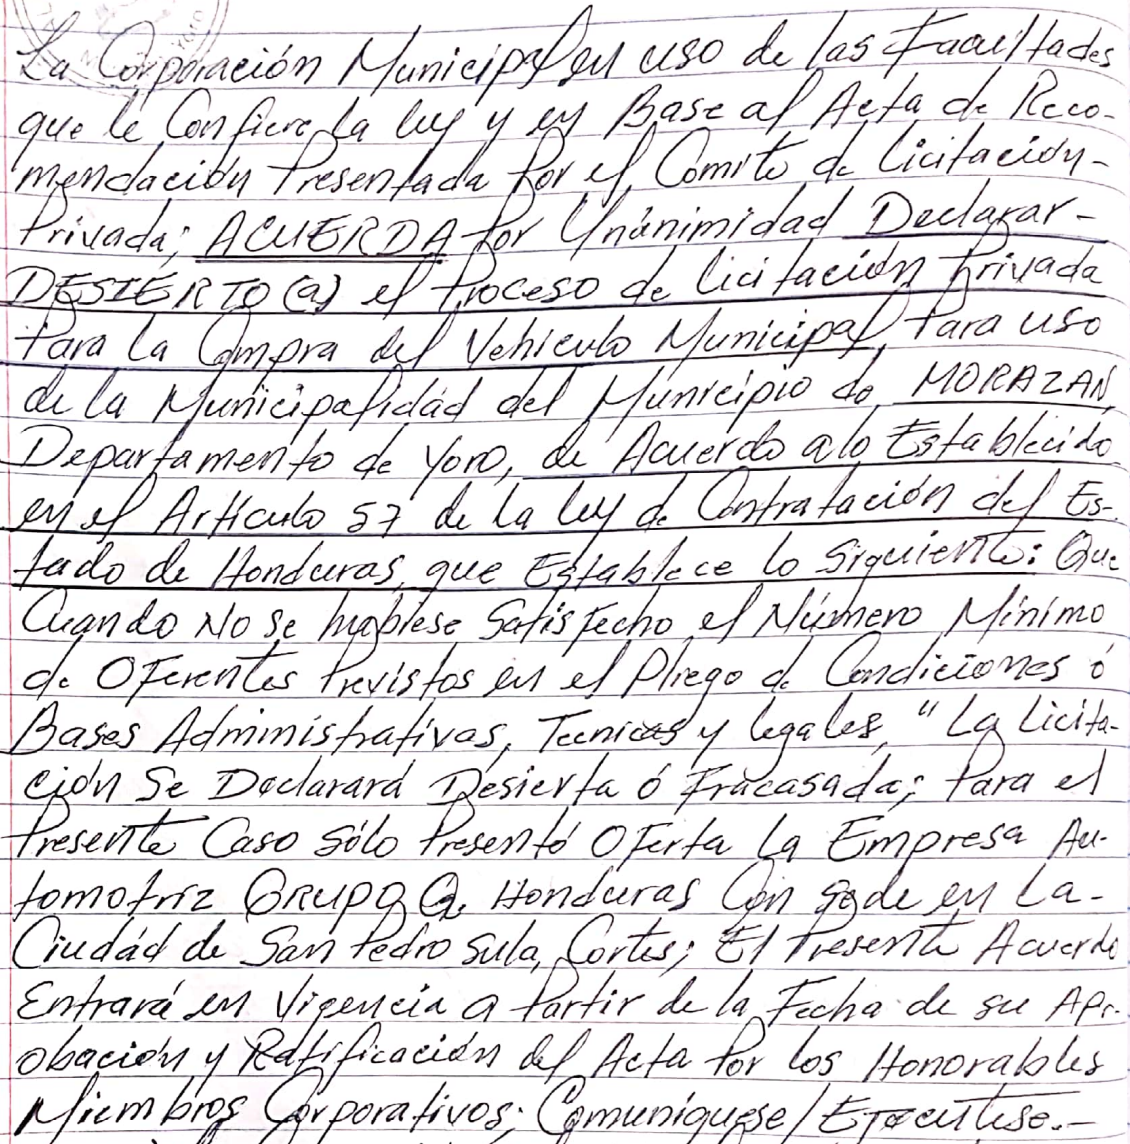 La Corporación Municipal en uso de las Facultades
que le Confiere la ley y en Base al Acta de Reco-
mendación Presentada Por el Comite de Licitación-
Privada; ACUERDA Por Unánimidad Declarar-
DESIERTO (a) el Proceso de Licitación Privada
Para la Compra del Vehiculo Municipal, Para uso
de la Municipalidád del Municipio de MORAZAN,
Departamento de Yoro, de Acuerdo a lo Establecido
en el Artículo 57 de la ley de Contratación del Es-
tado de Honduras, que Establece lo Siguiente: Que
Cuando No se hubiese Satisfecho el Número Mínimo
de Oferentes Previstos en el Pliego de Condiciones ó
Bases Administrativas, Tecnicas y legales, "La Licita-
ción Se Declarará Desierta ó Fracasada; Para el
Presente Caso Sólo Presentó Oferta La Empresa Au-
tomotriz GRUPO Q. Honduras Con Sede en La-
Ciudád de San Pedro Sula, Cortes; El Presente Acuerdo
Entrará en Vigencia a Partir de la Fecha de su Apr-
obación y Ratificación del Acta Por los Honorables
Miembros Corporativos; Comuníquese/Ejecutese.-